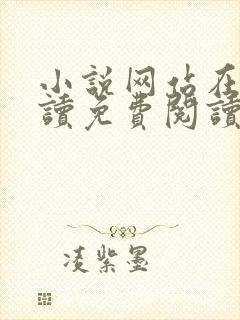 小説网站在
讀免費閱讀
凌紫墨